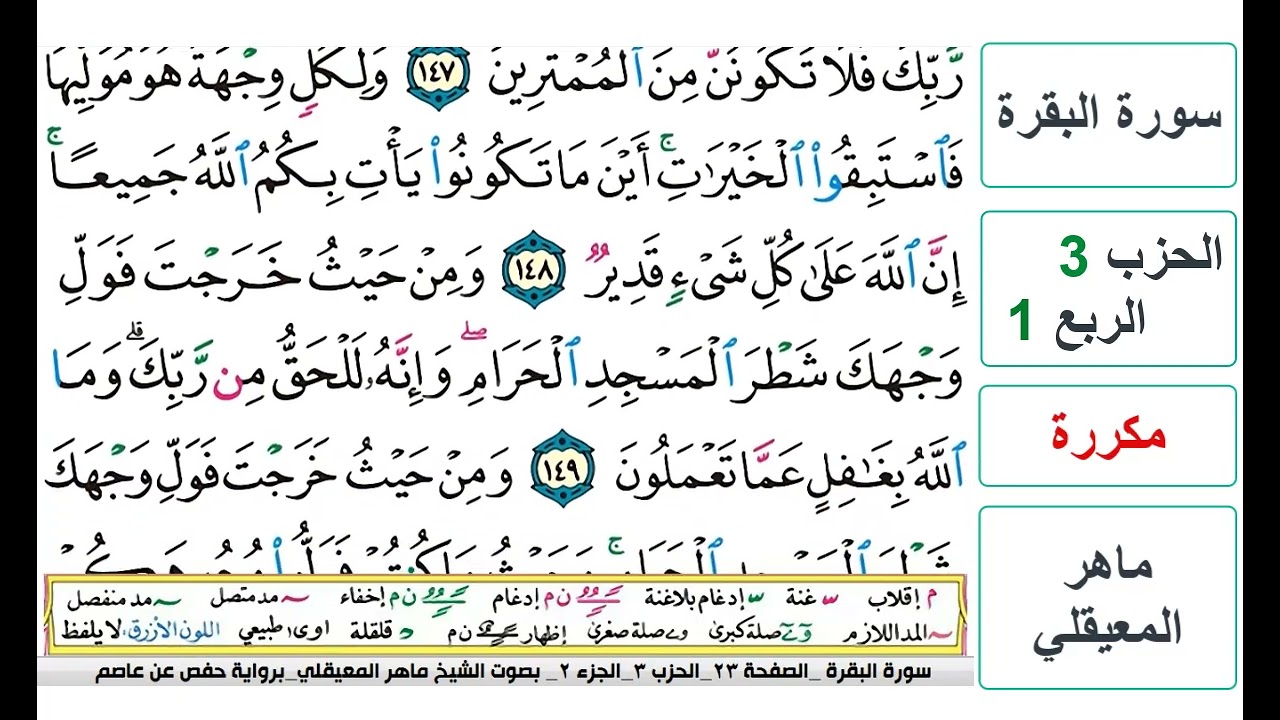 رَّبِّكَ فَلَا تَكُونَنَّ مِنَ ٱلْمُمْتَرِينَ ١٤٧ وَلِكُلٍّ وِجْهَةٌ هُوَ مُوَلِّيهَا
فَٱسْتَبِقُوا۟ ٱلْخَيْرَٰتِ ۚ أَيْنَ مَا تَكُونُوا۟ يَأْتِ بِكُمُ ٱللَّهُ جَمِيعًا ۚ
إِنَّ ٱللَّهَ عَلَىٰ كُلِّ شَىْءٍ قَدِيرٌ ١٤٨ وَمِنْ حَيْثُ خَرَجْتَ فَوَلِّ
وَجْهَكَ شَطْرَ ٱلْمَسْجِدِ ٱلْحَرَامِ ۖ وَإِنَّهُۥ لَلْحَقُّ مِن رَّبِّكَ ۗ وَمَا
ٱللَّهُ بِغَـٰفِلٍ عَمَّا تَعْمَلُونَ ١٤٩ وَمِنْ حَيْثُ خَرَجْتَ فَوَلِّ وَجْهَكَ
م إقلاب غنة إدغام بلاغنة ن م إدغام ن م إخفاء مد متصل مد منفصل
المد اللازم صلة كبرى صلة صغرى إظهار ن م قلقلة اوى طبيعي اللون الأزرق، لا يلفظ
سورة البقرة _الصفحة ٢٣_الحزب ٣_الجزء ٢_ بصوت الشيخ ماهر المعيقلي_برواية حفص عن عاصم
سورة البقرة
الحزب 3
الربع 1
مكررة
ماهر
المعيقلي